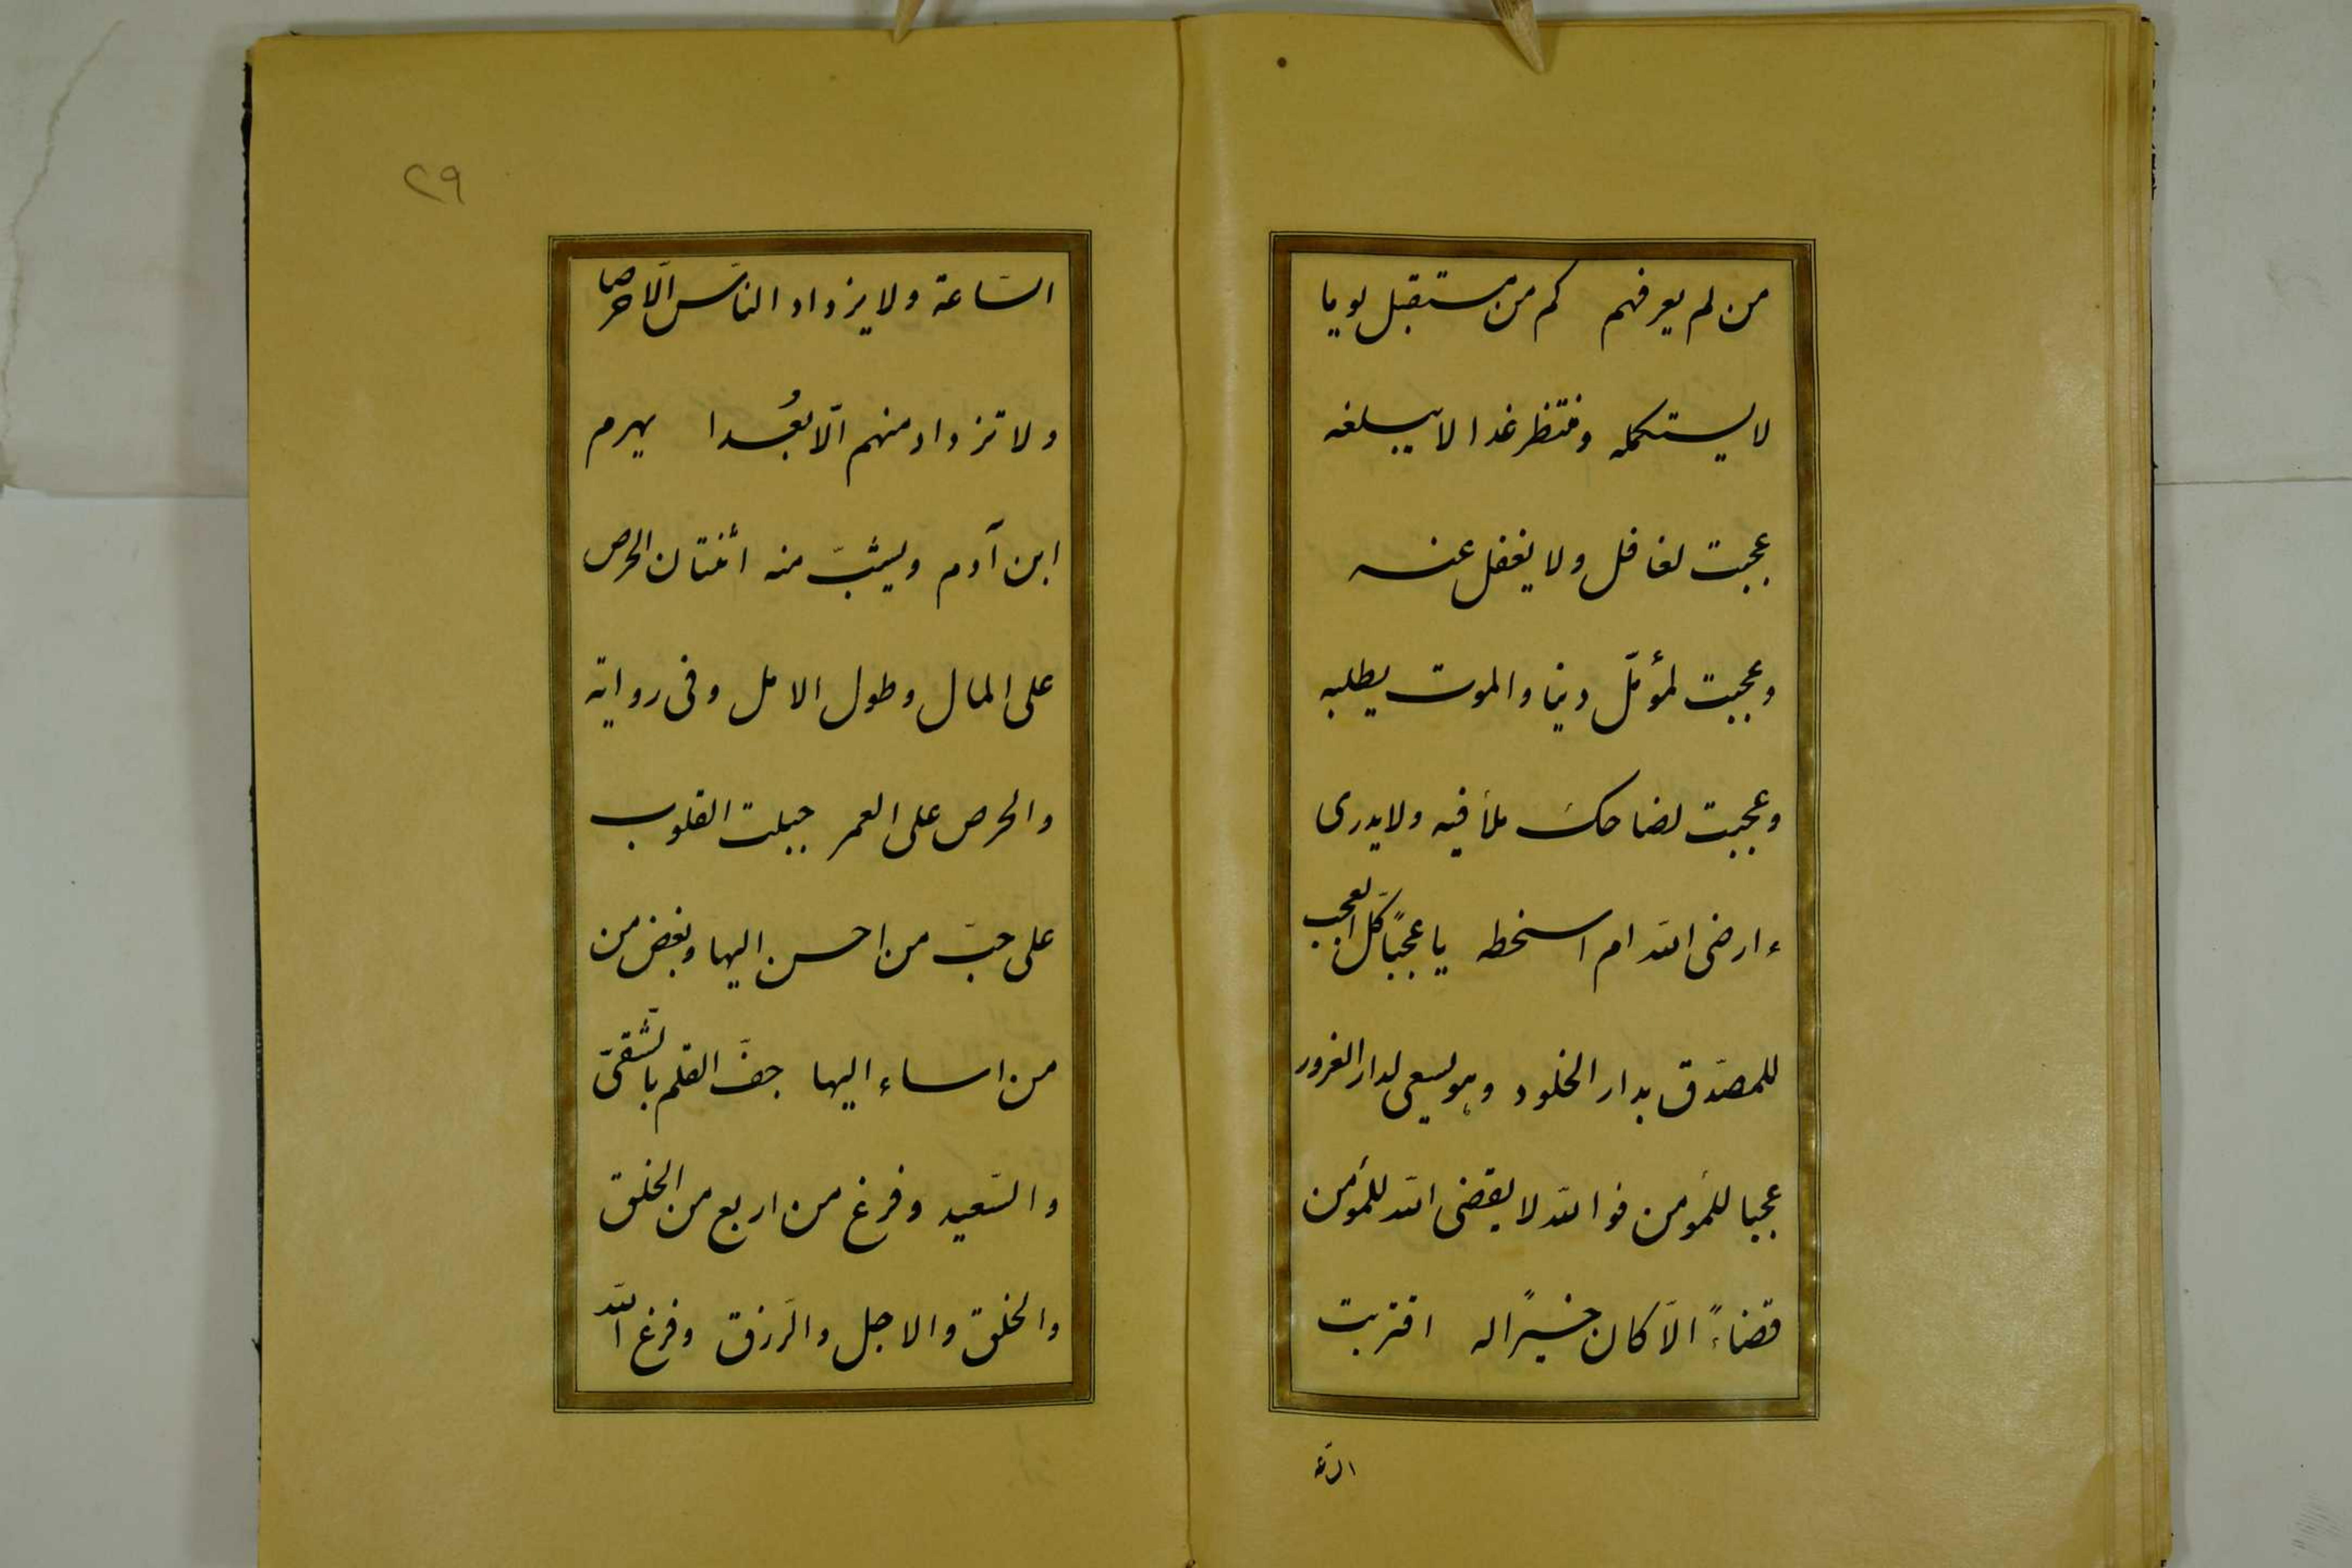 من لم يعرفهم كم من مستقبل يوما
لا يستكمله ومنتظر غدا لا يبلغه
عجبت لغافل ولا يغفل عنه
وعجبت لمؤمّل دنيا والموت يطلبه
وعجبت لضاحك ملأ فيه ولا يدرى
ءارضى الله ام اسخطه يا عجبًا كلّ العجب
للمصدّق بدار الخلود وهو يسعى لدار الغرور
عجبا للمؤمن فوالله لا يقضى الله للمؤمن
قضاءً الّا كان خيرًا له اقتربت
السّاعة
٢٩
السّاعة ولا يزداد الناس الّا حرصا
ولا تزداد منهم الّا بُعدا يهرم
ابن آدم ويشبّ منه اثنتان الحرص
على المال وطول الامل وفى رواية
والحرص على العمر جبلت القلوب
على حبّ من احسن اليها وبغض من
من اساء اليها جفّ القلم بالشّقىّ
والسّعيد وفرغ من اربع من الخلق
والخلق والاجل والرّزق وفرغ الله